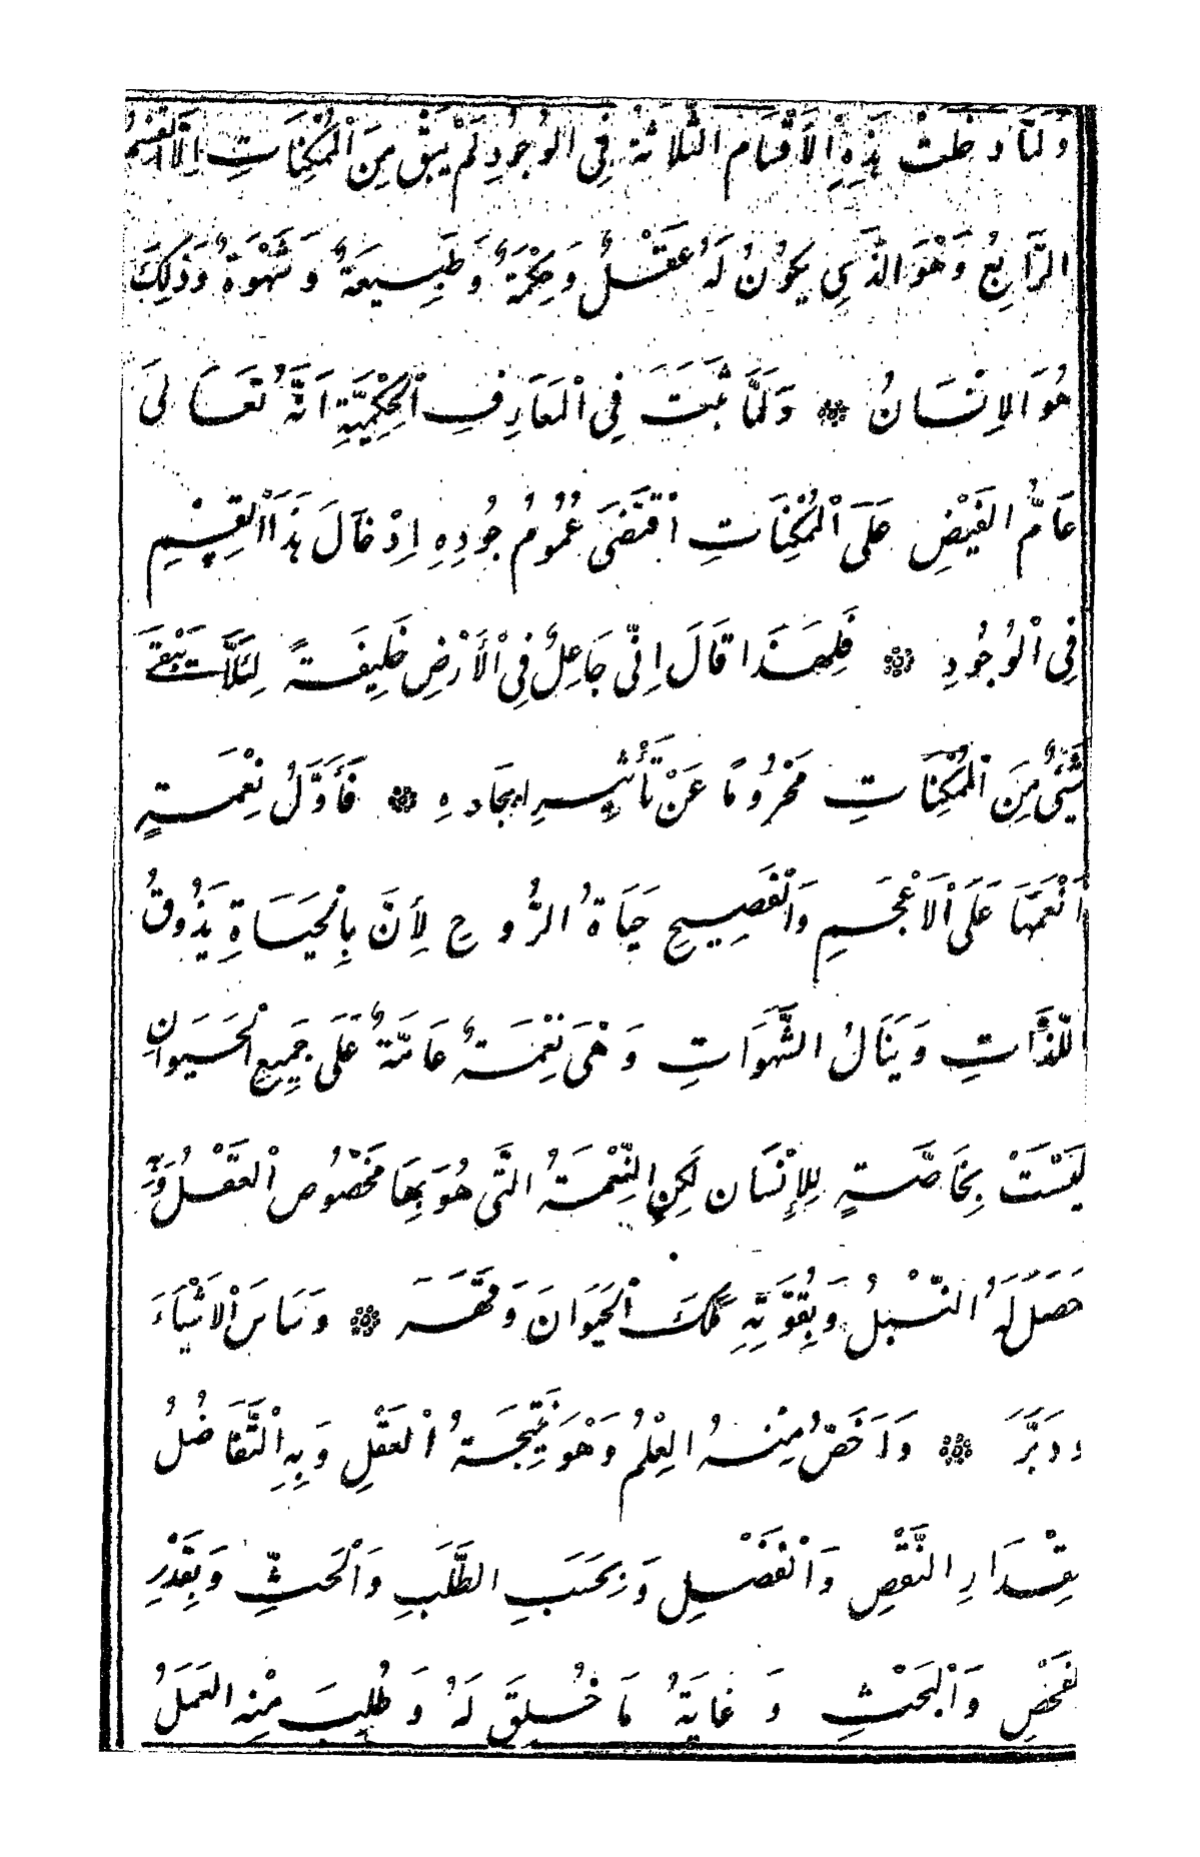 وَلَمَّا دَخَلَتْ هَذِهِ الْأَقْسَامُ الثَّلَاثَةُ فِى الْوُجُودِ لَمْ يَبْقَ مِنَ الْمُمْكِنَاتِ اِلَّا الْقِسْمُ
الرَّابِعُ وَهْوَ الَّذِى يَكُونُ لَهُ عَقْلٌ وَحِكْمَةٌ وَطَبِيعَةٌ وَشَهْوَةٌ وَذَلِكَ
هُوَ الْاِنْسَانُ ❊ وَلَمَّا ثَبَتَ فِى الْمَعَارِفِ الْحِكْمِيَّةِ اَنَّهُ تَعَالَى
عَامُّ الْفَيْضِ عَلَى الْمُمْكِنَاتِ اقْتَضَى عُمُومُ جُودِهِ اِدْخَالَ هَذَا الْقِسْمِ
فِى الْوُجُودِ ❊ فَلِهَذَا قَالَ اِنِّى جَاعِلٌ فِى الْأَرْضِ خَلِيفَةً لِئَلَّا يَبْقَى
شَيْءٌ مِنَ الْمُمْكِنَاتِ مَحْرُومًا عَنْ تَأْثِيرِ اِيجَادِهِ ❊ فَأَوَّلُ نِعْمَةٍ
اَنْعَمَهَا عَلَى الْاَعْجَمِ وَالْفَصِيحِ حَيَاةُ الرُّوحِ لِأَنَّ بِالْحَيَاةِ يَذُوقُ
اللَّذَّاتِ وَيَنَالُ الشَّهَوَاتِ وَهْىَ نِعْمَةٌ عَامَّةٌ عَلَى جَمِيعِ الْحَيَوَانِ
لَيْسَتْ بِخَاصَّةٍ لِلْإِنْسَانِ لَكِنِ النِّعْمَةُ الَّتِى هُوَ بِهَا مَخْصُوصٌ الْعَقْلُ وَبِهِ
حَصَلَ لَهُ النُّبْلُ وَبِقُوَّتِهِ مَلَكَ الْحَيَوَانَ وَقَهَرَ ❊ وَسَاسَ الْاَشْيَاءَ
وَدَبَّرَ ❊ وَاَخَصُّ مِنْهُ الْعِلْمُ وَهْوَ نَتِيجَةُ الْعَقْلِ وَبِهِ التَّفَاضُلُ
بِقْدَارِ النَّقْصِ وَالْفَضْلِ وَبِحَسَبِ الطَّلَبِ وَالْحَثِّ وَبِقَدْرِ
لْفَحْصِ وَالْبَحْثِ وَغَايَةُ مَا خُلِقَ لَهُ وَطُلِبَ مِنْهُ الْعَمَلُ